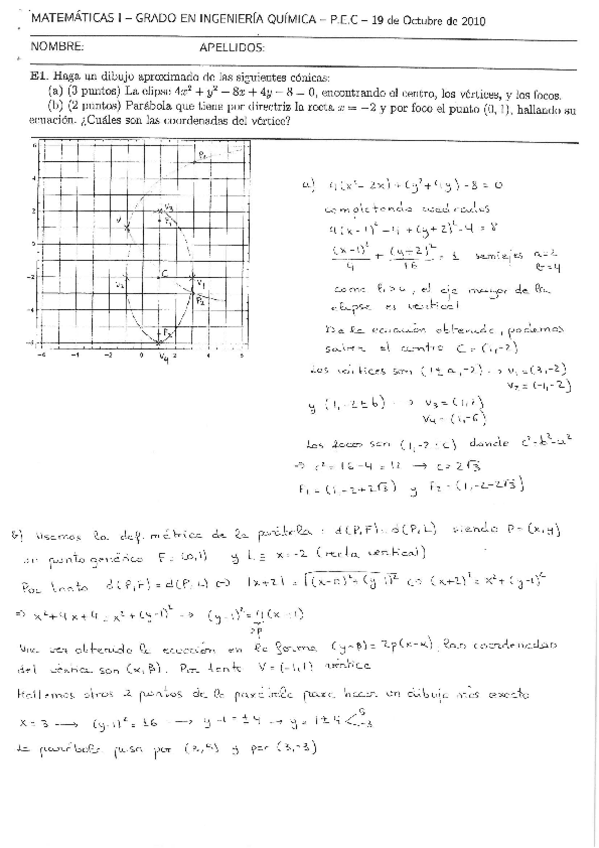 MATEMÁTICAS I – GRADO EN INGENIERÍA QUÍMICA – P.E.C – 19 de Octubre de 2010
NOMBRE: APELLIDOS:
E1. Haga un dibujo aproximado de las siguientes cónicas:
(a) (3 puntos) La elipse 4x² + y² − 8x + 4y − 8 = 0, encontrando el centro, los vértices, y los focos.
(b) (2 puntos) Parábola que tiene por directriz la recta x = −2 y por foco el punto (0, 1), hallando su
ecuación. ¿Cuáles son las coordenadas del vértice?
a) 4(x²-2x)+(y²+4y)-8=0
completando cuadrados
4(x-1)²-4+(y+2)²-4=8
(x-1)²/4 + (y+2)²/16 = 1 semiejes a=2
b=4
como b>a, el eje mayor de la
elipse es vertical
De la ecuación obtenida, podemos
saber el centro C=(1,-2)
Los vértices son (1±a,-2) → V₁=(3,-2)
V₂=(-1,-2)
y (1,-2±b) → V₃=(1,2)
V₄=(1,-6)
Los focos son (1,-2±c) donde c²=b²-a²
⇒ c²=16-4=12 → c=2√3
F₁=(1,-2+2√3) y F₂=(1,-2-2√3)
b) Usamos la def. métrica de la parábola: d(P,F)=d(P,L) siendo P=(x,y)
un punto genérico F=(0,1) y L≡x=-2 (recta vertical)
Por tanto d(P,F)=d(P,L) ⇔ |x+2|=√(x-0)²+(y-1)² ⇔ (x+2)²=x²+(y-1)²
⇒ x²+4x+4=x²+(y-1)² → (y-1)²=4(x+1)
2p
Una vez obtenido la ecuación en la forma (y-β)=2p(x-α), las coordenadas
del vértice son (α,β). Por tanto V=(-1,1) vértice
Hallemos otros 2 puntos de la parábola para hacer un dibujo más exacto
x=3 → (y-1)²=16 → y-1=±4 → y=1±4 < 5
-3
la parábola pasa por (3,5) y por (3,-3)